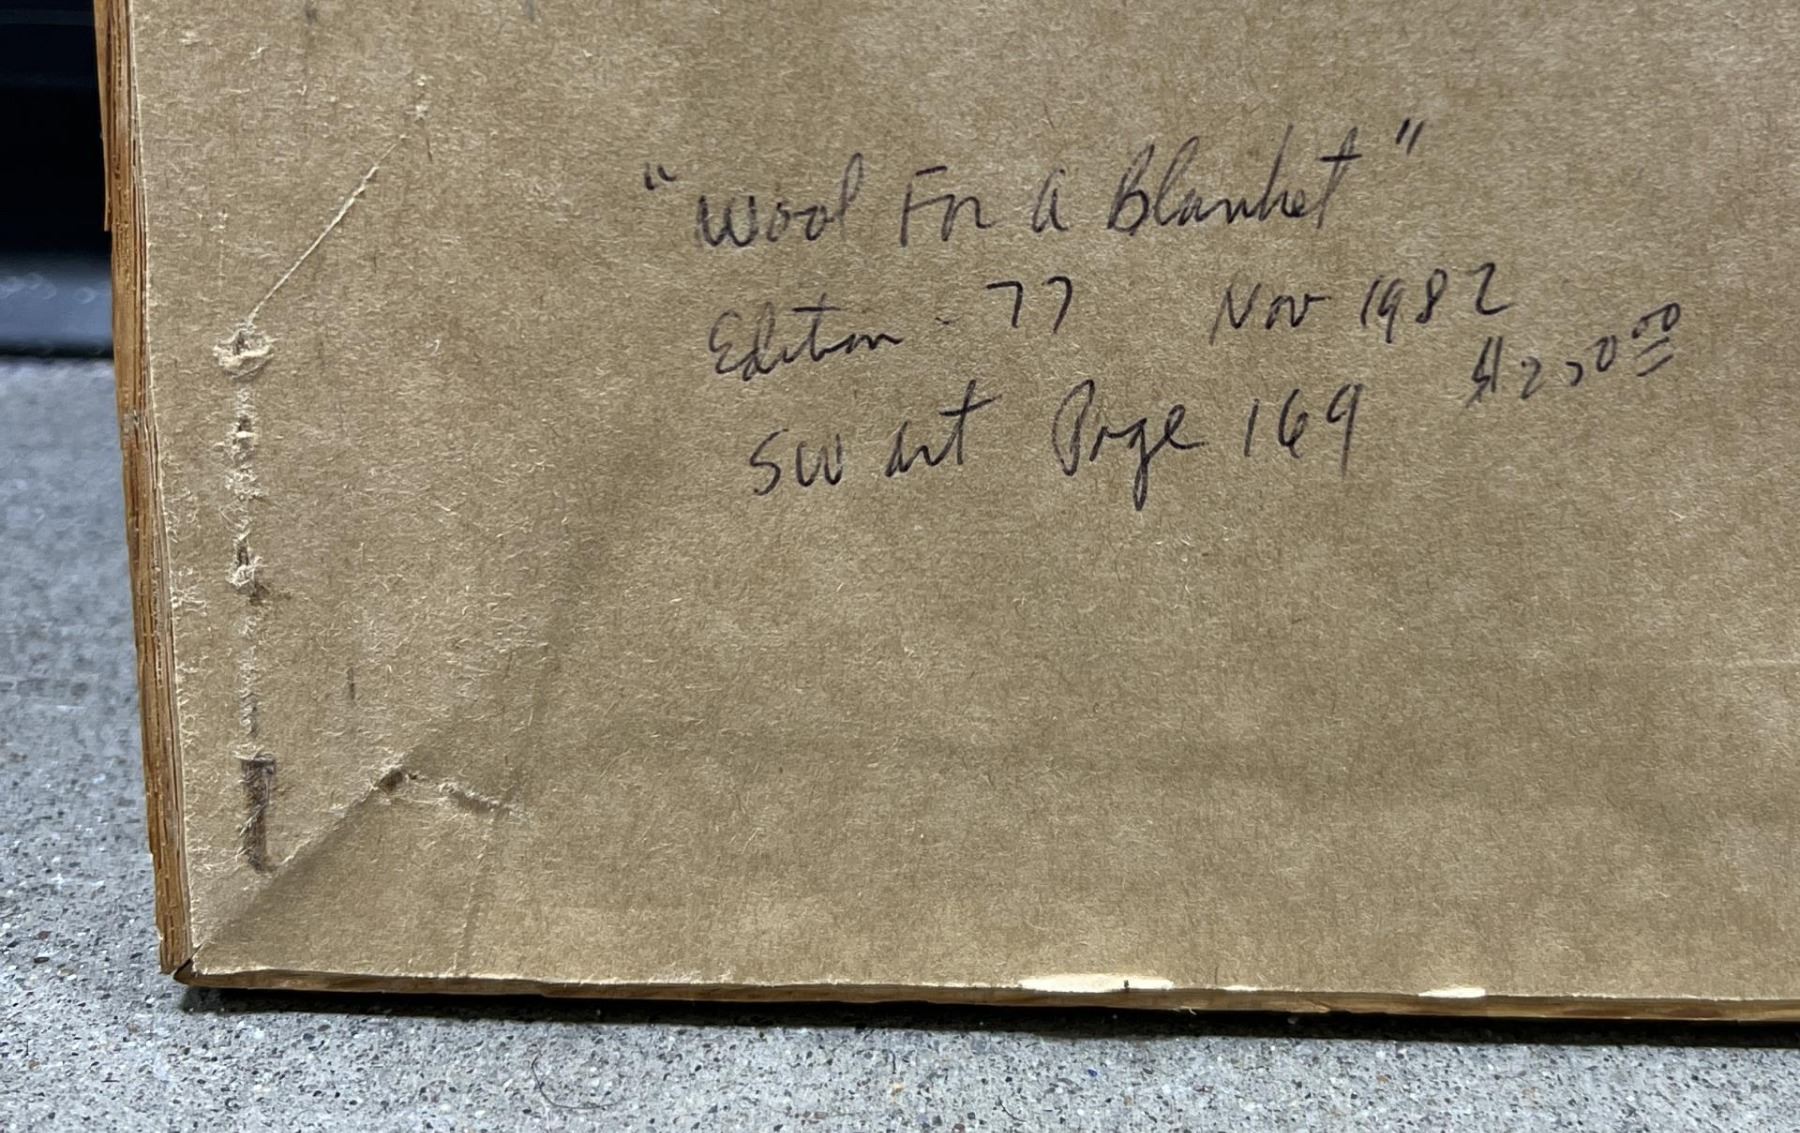 "Wool For A Blanket"
Edition - 77 Nov 1982
SW art Page 169